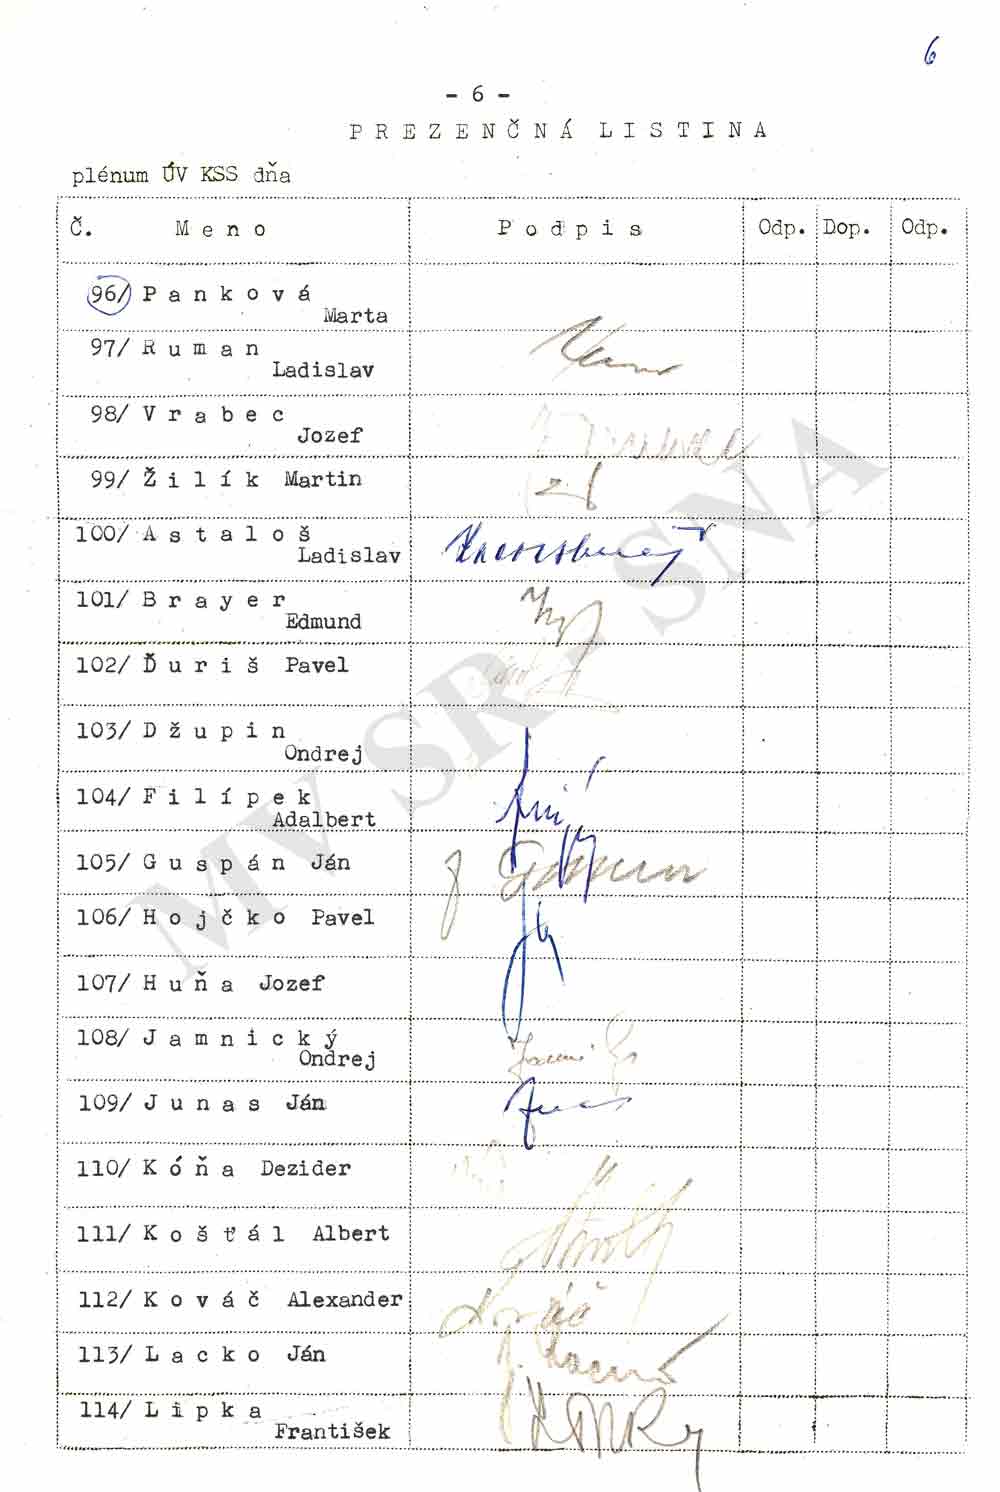 6
- 6 -
PREZENČNÁ LISTINA
plénum ÚV KSS dňa
Č. Meno Podpis Odp. Dop. Odp.
96/ Panková
Marta
97/ Ruman
Ladislav
98/ Vrabec
Jozef
99/ Žilík Martin
100/ Astaloš
Ladislav
101/ Brayer
Edmund
102/ Ďuriš Pavel
103/ Džupin
Ondrej
104/ Filípek
Adalbert
105/ Guspán Ján
106/ Hojčko Pavel
107/ Huňa Jozef
108/ Jamnický
Ondrej
109/ Junas Ján
110/ Kóňa Dezider
111/ Košťál Albert
112/ Kováč Alexander
113/ Lacko Ján
114/ Lipka
František
MV SR, SNA